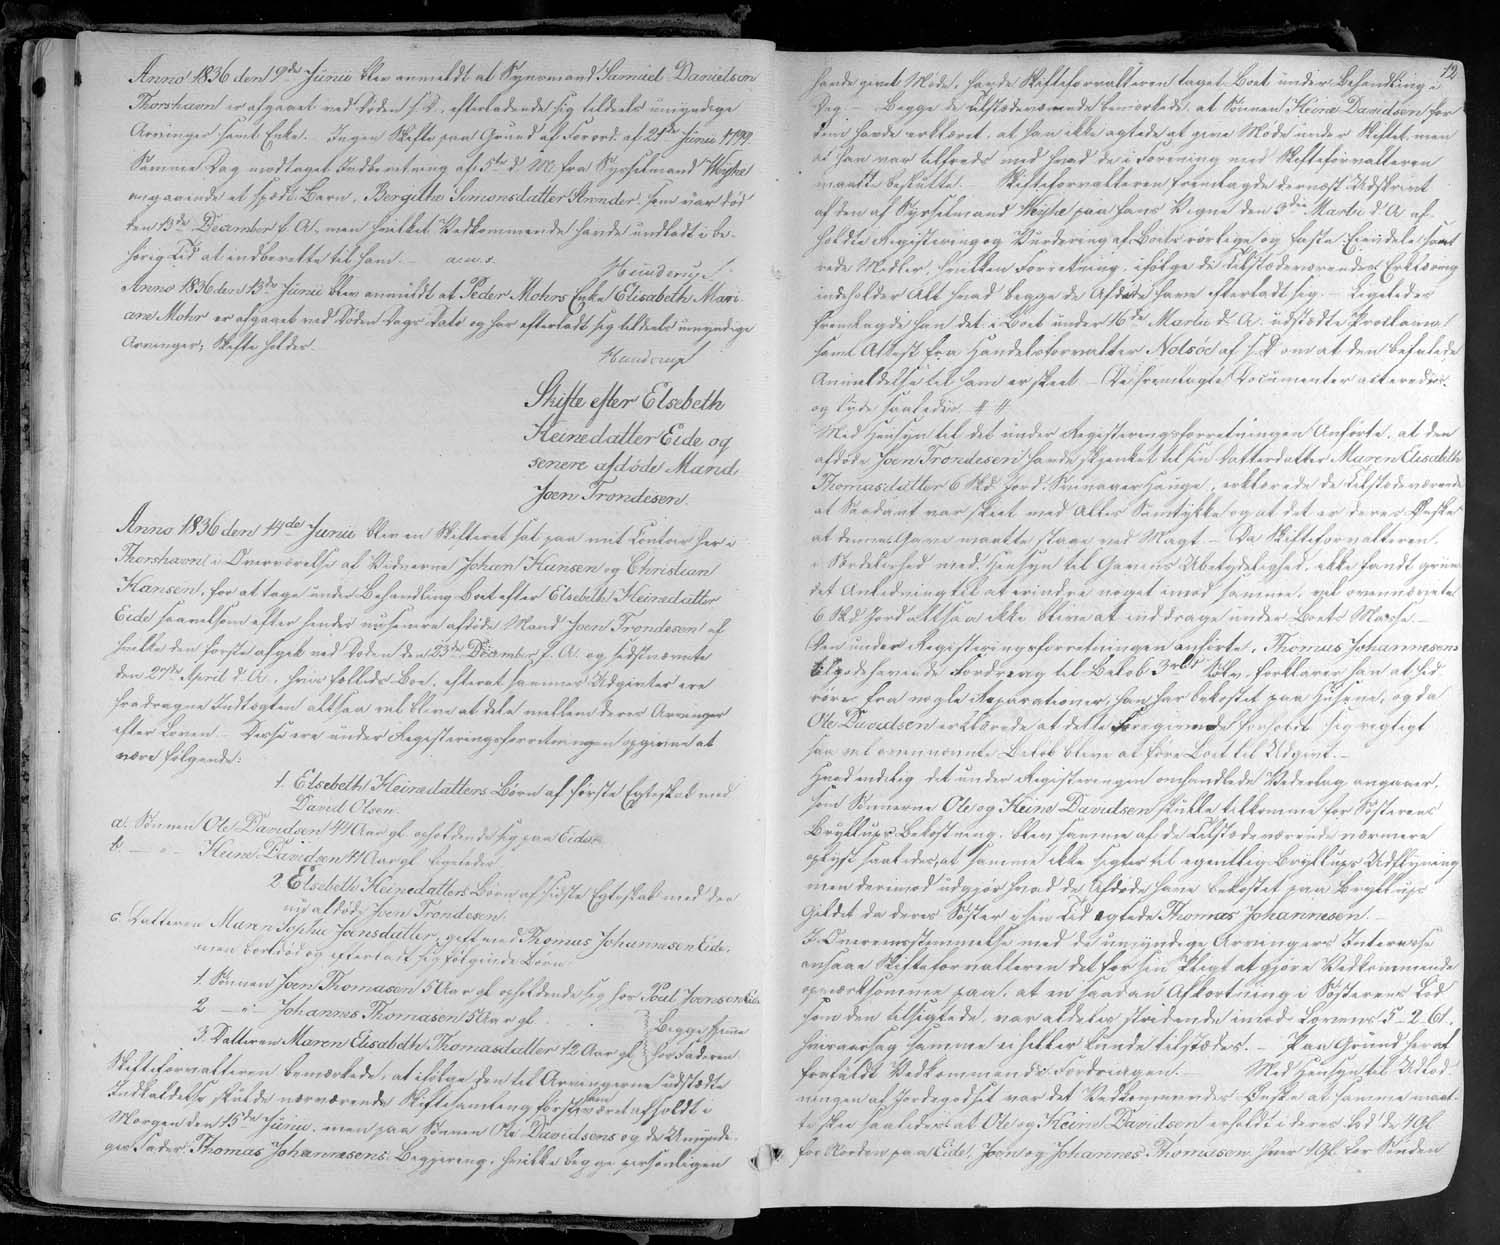 Anno 1836 den 9de Junii blev anmeldt at Synsmand Samuel Danielsen
Thorshavn er afgaaet ved Døden f. D. efterladende sig tildeels umyndige
Arvinger samt Enke. – Ingen Skifte paa Grund af Forord. af 21de Junii 1799.
Samme Dag modtaget Indberetning af 5te d. M. fra Sysselmand Weyhe
angaaende et spædt Barn, Bergithe Simonsdatter Strender, som var død
den 13de December f. A., men hvilket Vedkommende havde undladt i be-
hørig Tid at indberette til ham. – a. u. s.
Hunderup.
Anno 1836 den 13de Junii blev anmeldt at Peder Mohrs Enke Elisabeth Mari-
ane Mohr er afgaaet ved Døden Dags Dato og har efterladt sig tildeels umyndige
Arvinger; Skifte holdes. –
Hunderup
Skifte efter Elsebeth
Heinedatter Eide og
senere afdøde Mand
Joen Trondesen.
Anno 1836 den 14de Junii blev en Skifteret sat paa mit Contoir her i
Thorshavn i Overværelse af Vidnerne Johan Hansen og Christian
Hansen, for at tage under Behandling Boet efter Elsebeth Heinedatter
Eide saavelsom efter hendes nu senere afdøde Mand Joen Trondesen af
hvilke den første afgik ved Døden den 23de December f. A. og sidstnævnte
den 27de April d. A., hvis fælleds Boe, efterat sammes Udgivter ere
fradragne Indtægten altsaa vil blive at dele mellem deres Arvinger
efter Loven. – Disse ere under Registreringsforretningen opgivne at
være følgende:
1. Elsebeth Heinedatters Børn af første Egteskab med
David Olsen.
a. Sønnen Ole Davidsen 44 Aar gl. opholdende sig paa Eide.
b. – " – Heine Davidsen 41 Aar gl. ligeledes.
2 Elsebeth Heinedatters Børn af sidste Egteskab med den
nu afdøde Joen Trondesen.
c. Datteren Maren Sophie Joensdatter, gift med Thomas Johannesen Eide,
men bortdød og efterladt sig følgende Børn:
1. Sønnen Joen Thomasen 5 Aar gl. opholdende sig hos Poul Joensen Eide
2 – " – Johannes Thomasen 5 Aar gl.
3. Datteren Maren Elisabeth Thomasdatter 12 Aar gl.
Begge hjemme
hos Faderen.
Skifteforvalteren bemærkede, at ifølge den til Arvingerne udstædte
Indkaldelse skulde nærværende Skiftesamling først have været afholdt i
Morgen den 15de Junii, men paa Sønnen Ole Davidsens og de Umyndi-
ges Fader Thomas Johannesens Begjering, hvilke begge personligen
12
havde givet Møde, havde Skifteforvalteren taget Boet under Behandling i
Dag. – Begge de Tilstædeværende bemærkede, at Sønnen Heine Davidsen for
dem havde erklæret, at han ikke agtede at give Møde under Skiftet, men
at han var tilfreds med hvad de i Forening med Skifteforvalteren
maatte beslutte. – Skifteforvalteren fremlagde dernæst Udskrivt
af den af Sysselmand Weyhe paa hans Vegne den 3die Martii d. A. af-
holdte Registrering og Vurdering af Boets rørlige og faste Eiendele samt
rede Midler, hvilken Forretning, ifølge de Tilstædeværendes Erklæring
indeholder Alt hvad begge de Afdøde have efterladt sig. – Ligeledes
fremlagde han det i Boet under 16de Martii d. A. udstædte Proclama,
samt Attest fra Handelsforvalter Nolsøe af f. D. om at den befalede
Anmeldelse til ham er skeet. – De fremlagte Documenter acteredes
og lyde saaledes. # #
Med Hensyn til det under Registreringsforretningen Anførte, at den
afdøde Joen Trondesen havde skjenket til sin Datterdatter Maren Elisabeth
Thomasdatter 6 Skd. Jord i Svinaaer Hauge, erklærede de Tilstædeværende
at Saadant var skeet med Alles Samtykke og at det er deres Ønske
at denne Gave maatte staae ved Magt. – Da Skifteforvalteren,
i Særdeleshed med Hensyn til Gavens Ubetydelighed, ikke fandt grun-
det Anledning til at erindre noget imod samme, vil ovennævnte
6 Skd. Jord altsaa ikke blive at inddrage under Boets Masse. –
Den under Registreringsforretningen anførte, Thomas Johannesens
tilgodehavende Fordring til Beløb 3 rbd Sølv, forklarer han at hid-
røre fra nogle Reparationer, han har bekostet paa Husene, og da
Ole Davidsen erklærede at dette Foregivende forholdt sig rigtigt
saa vil ovennævnte Beløb blive at føre Boet til Udgivt. –
Hvad endelig det under Registreringen omhandlede Vederlag angaaer,
som Sønnerne Ole og Heine Davidsen skulle tilkomme for Søsterens
Bryllups Bekostning, blev samme af de Tilstædeværende nærmere
oplyst saaledes, at samme ikke sigter til egentlig Bryllups Udstyring
men derimod udgjør hvad de Afdøde have bekostet paa Bryllups
Gildet da deres Søster i sin Tid egtede Thomas Johannesen. –
I Overensstemmelse med de umyndige Arvingers Interesse
ansaae Skifteforvalteren det for sin Pligt at gjøre Vedkommende
opmærksomme paa, at en saadan Afkortning i Søsterens Lod
som den tilsigtede, var aldeles stridende imod Lovens 5–2–61,
hvorfor samme ei heller kunde tilstædes. – Paa Grund heraf
frafaldt Vedkommende Fordringen. – Med Hensyn til Udlod-
ningen af Jordegodset var det Vedkommendes Ønske at samme maat-
te skee saaledes at Ole og Heine Davidsen erholdt i deres Lod de 4 Gl.
for Norden paa Eide, Joen og Johannes Thomasen hver 1 Gl. for Sønden